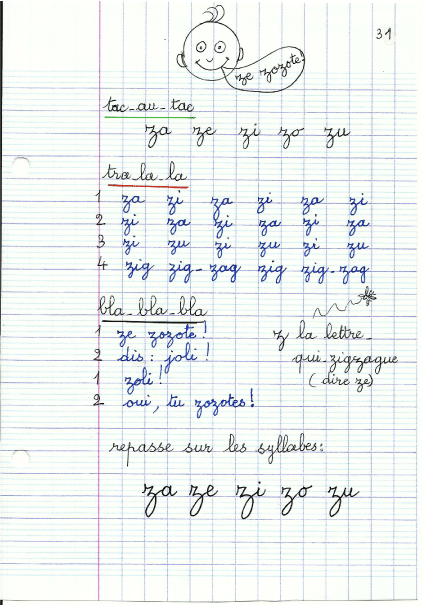 31
ze zozote!
tac-au-tac
za ze zi zo zu
tra-la-la
1 za zi za zi za zi
2 zi za zi za zi za
3 zi zu zi zu zi zu
4 zig zig-zag zig zig-zag
bla-bla-bla
1 ze zozote!
2 dis : joli !
1 zoli !
2 oui, tu zozotes !
z la lettre-
qui-zigzague
(dire ze)
repasse sur les syllabes:
za ze zi zo zu